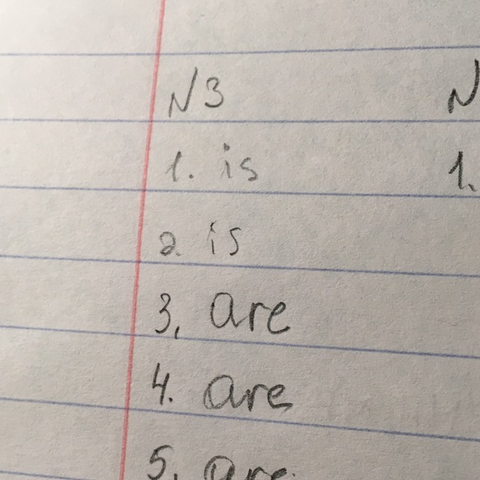 N3
1. is
2. is
3, are
4. are
5, are
N
1.